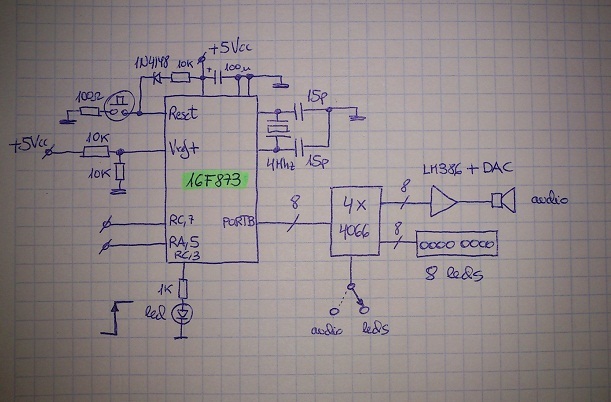 +5Vcc
1N4148 10K + 100μ
100Ω
15p
Reset
+5Vcc
10K
Vref+
10K
4Mhz
15p
16F873
LM386 + DAC
8
audio
4x
4066
RC,7
PORTB
8
8
RA,5
RC,3
8 leds
1K
led
audio leds